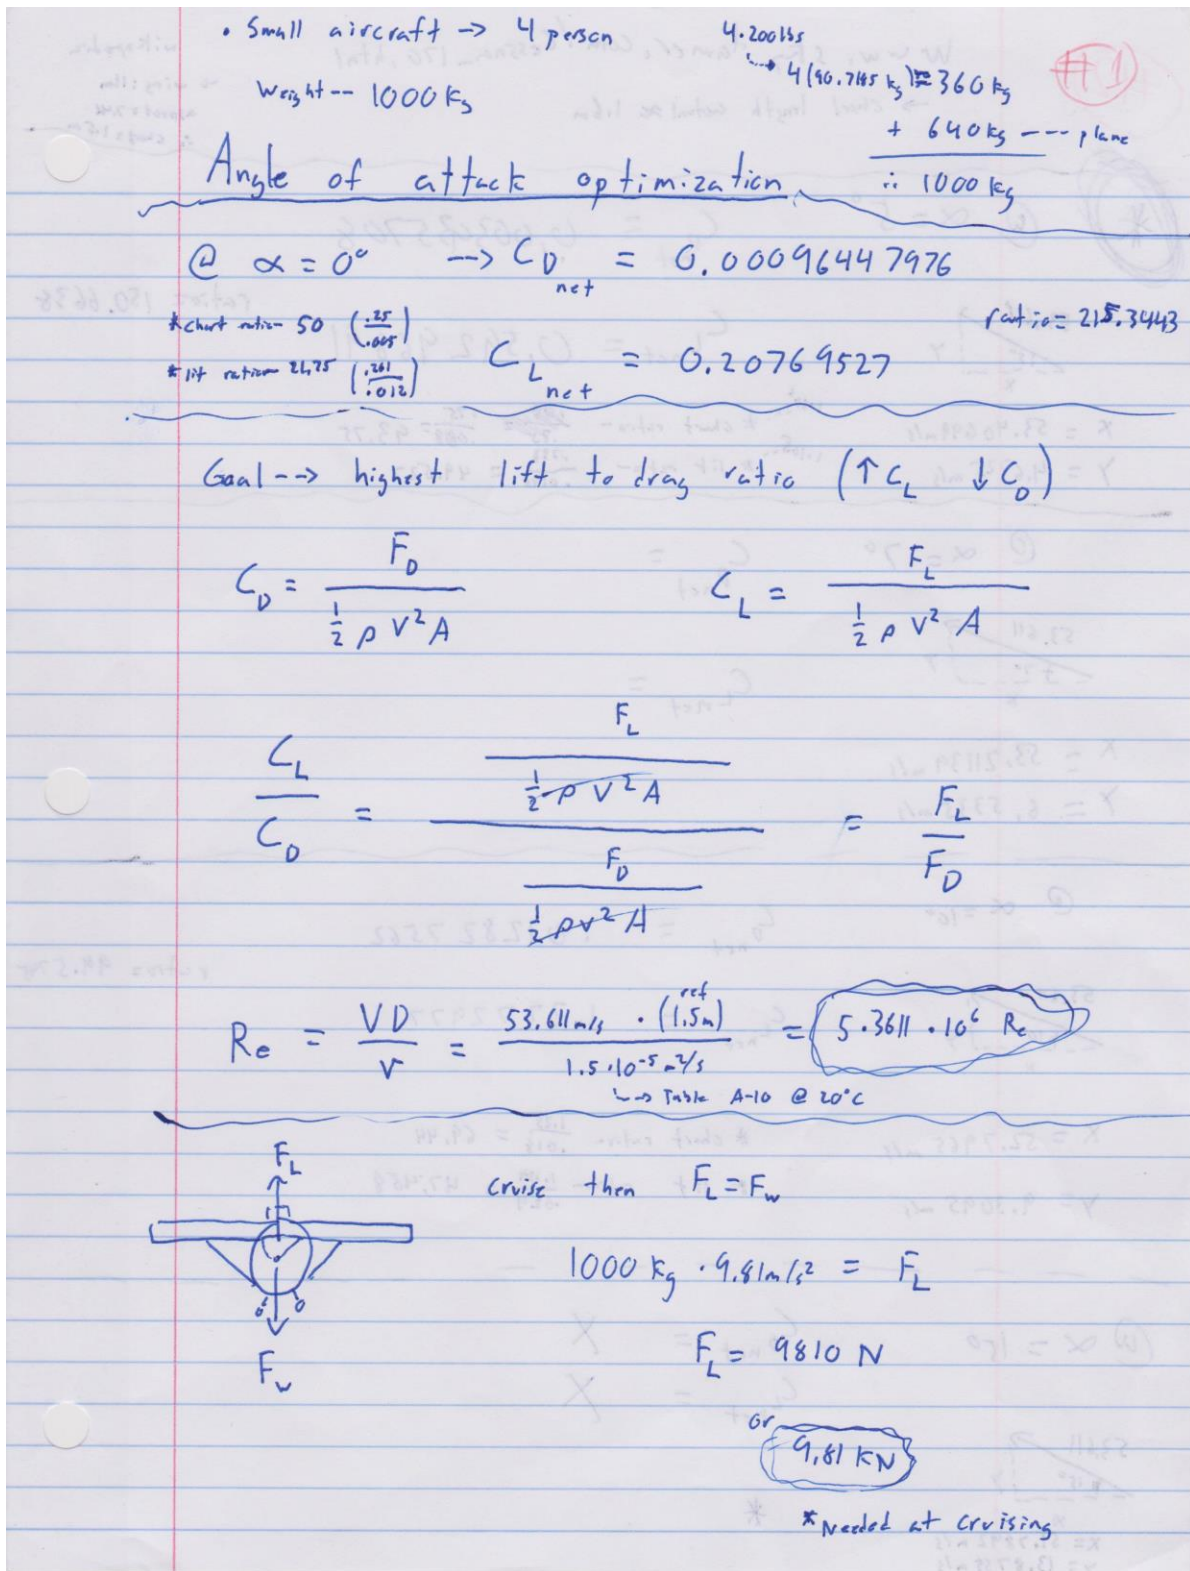 • Small aircraft → 4 person
4·200lbs
#1
↳ 4(90.7185 kg)≈360kg
Weight-- 1000Kg
+ 640kg --- plane
∴ 1000 kg
Angle of attack optimization
@ α = 0° --> C_D net = 0.00096447976
*chart ratio- 50 (.25/.005)
ratio= 215.3443
*lit ratio- 21.75 (.261/.012)
C_L net = 0.20769527
Goal --> highest lift to drag ratio (↑ C_L ↓ C_D)
C_D = F_D / (1/2 ρ V² A)
C_L = F_L / (1/2 ρ V² A)
C_L / C_D = (F_L / (1/2 ρ V² A)) / (F_D / (1/2 ρ V² A)) = F_L / F_D
Re = VD / v = 53.611m/s · (1.5m) ref / 1.5·10⁻⁵ m²/s = 5.3611 · 10⁶ Re
↳ Table A-10 @ 20°C
F_L
cruise then F_L = F_w
1000 kg · 9.81m/s² = F_L
F_L = 9810 N
F_w
or
9.81 KN
*Needed at cruising